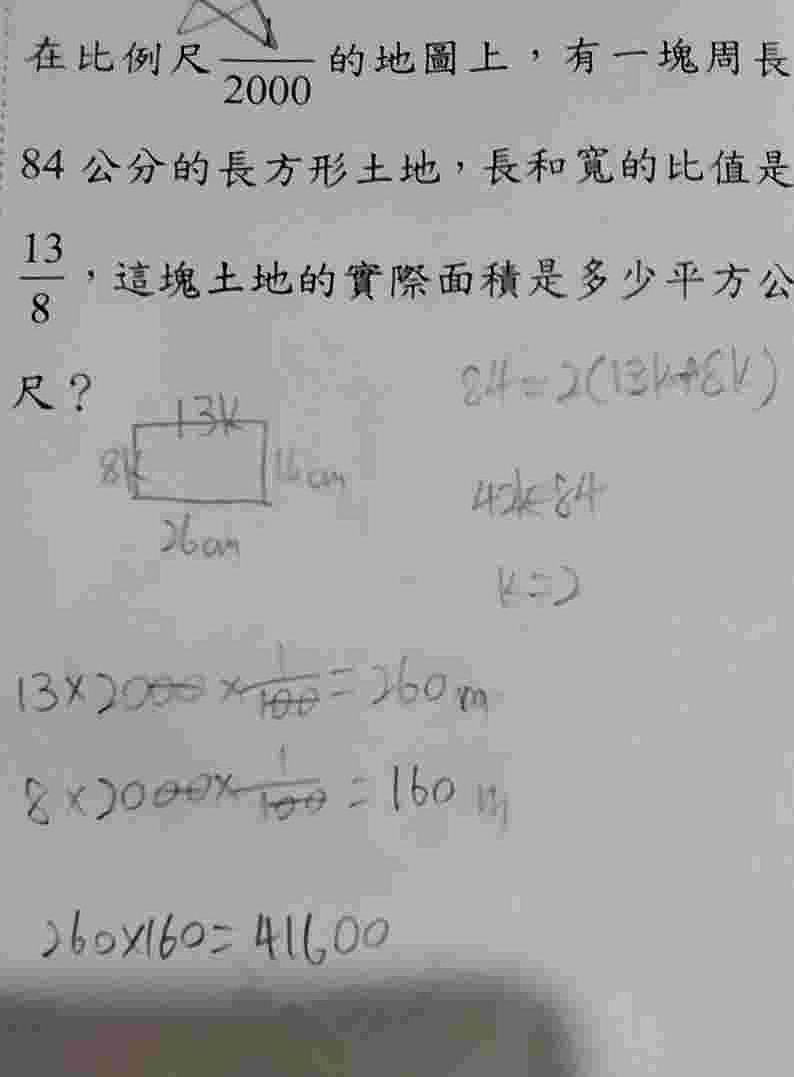 在比例尺 1/2000 的地圖上，有一塊周長
84 公分的長方形土地，長和寬的比值是
13/8，這塊土地的實際面積是多少平方公
尺？
84=2(13k+8k)
13k
8k 16cm
26cm
42k=84
k=2
13×2000×1/100=260m
8×2000×1/100=160 m
260×160=41600